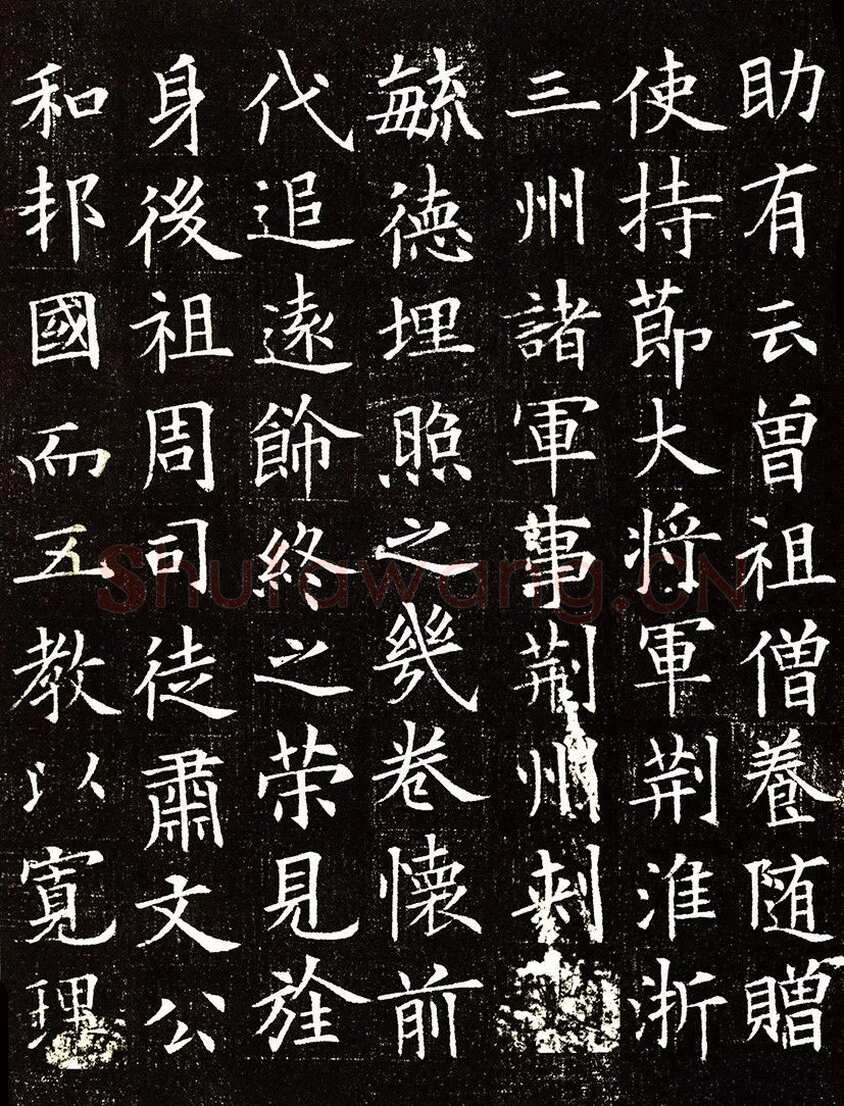 助有云曾祖僧養随贈
使持莭大将軍荆淮浙
三州諸軍事荆州刺
毓德埋照之幾卷懐前
代追遠飾終之荣見旌
身後祖周司徒肅文公
和邦國而五教以寛理
Shufawang.CN